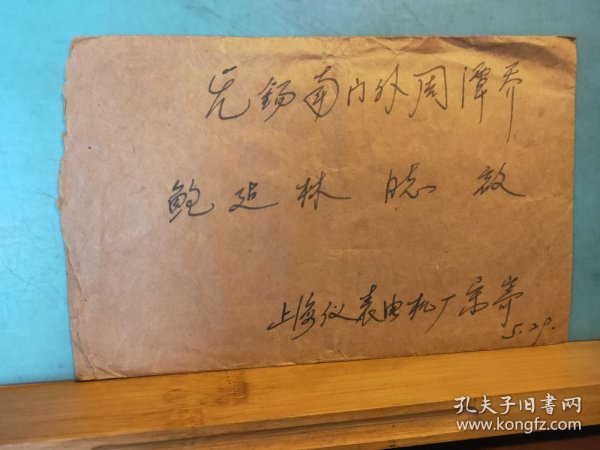 无锡南门外周潭乔
鲍廷林 同志 启
上海仪表电机厂宗寄
5.29.
孔夫子旧书网
www.kongfz.com